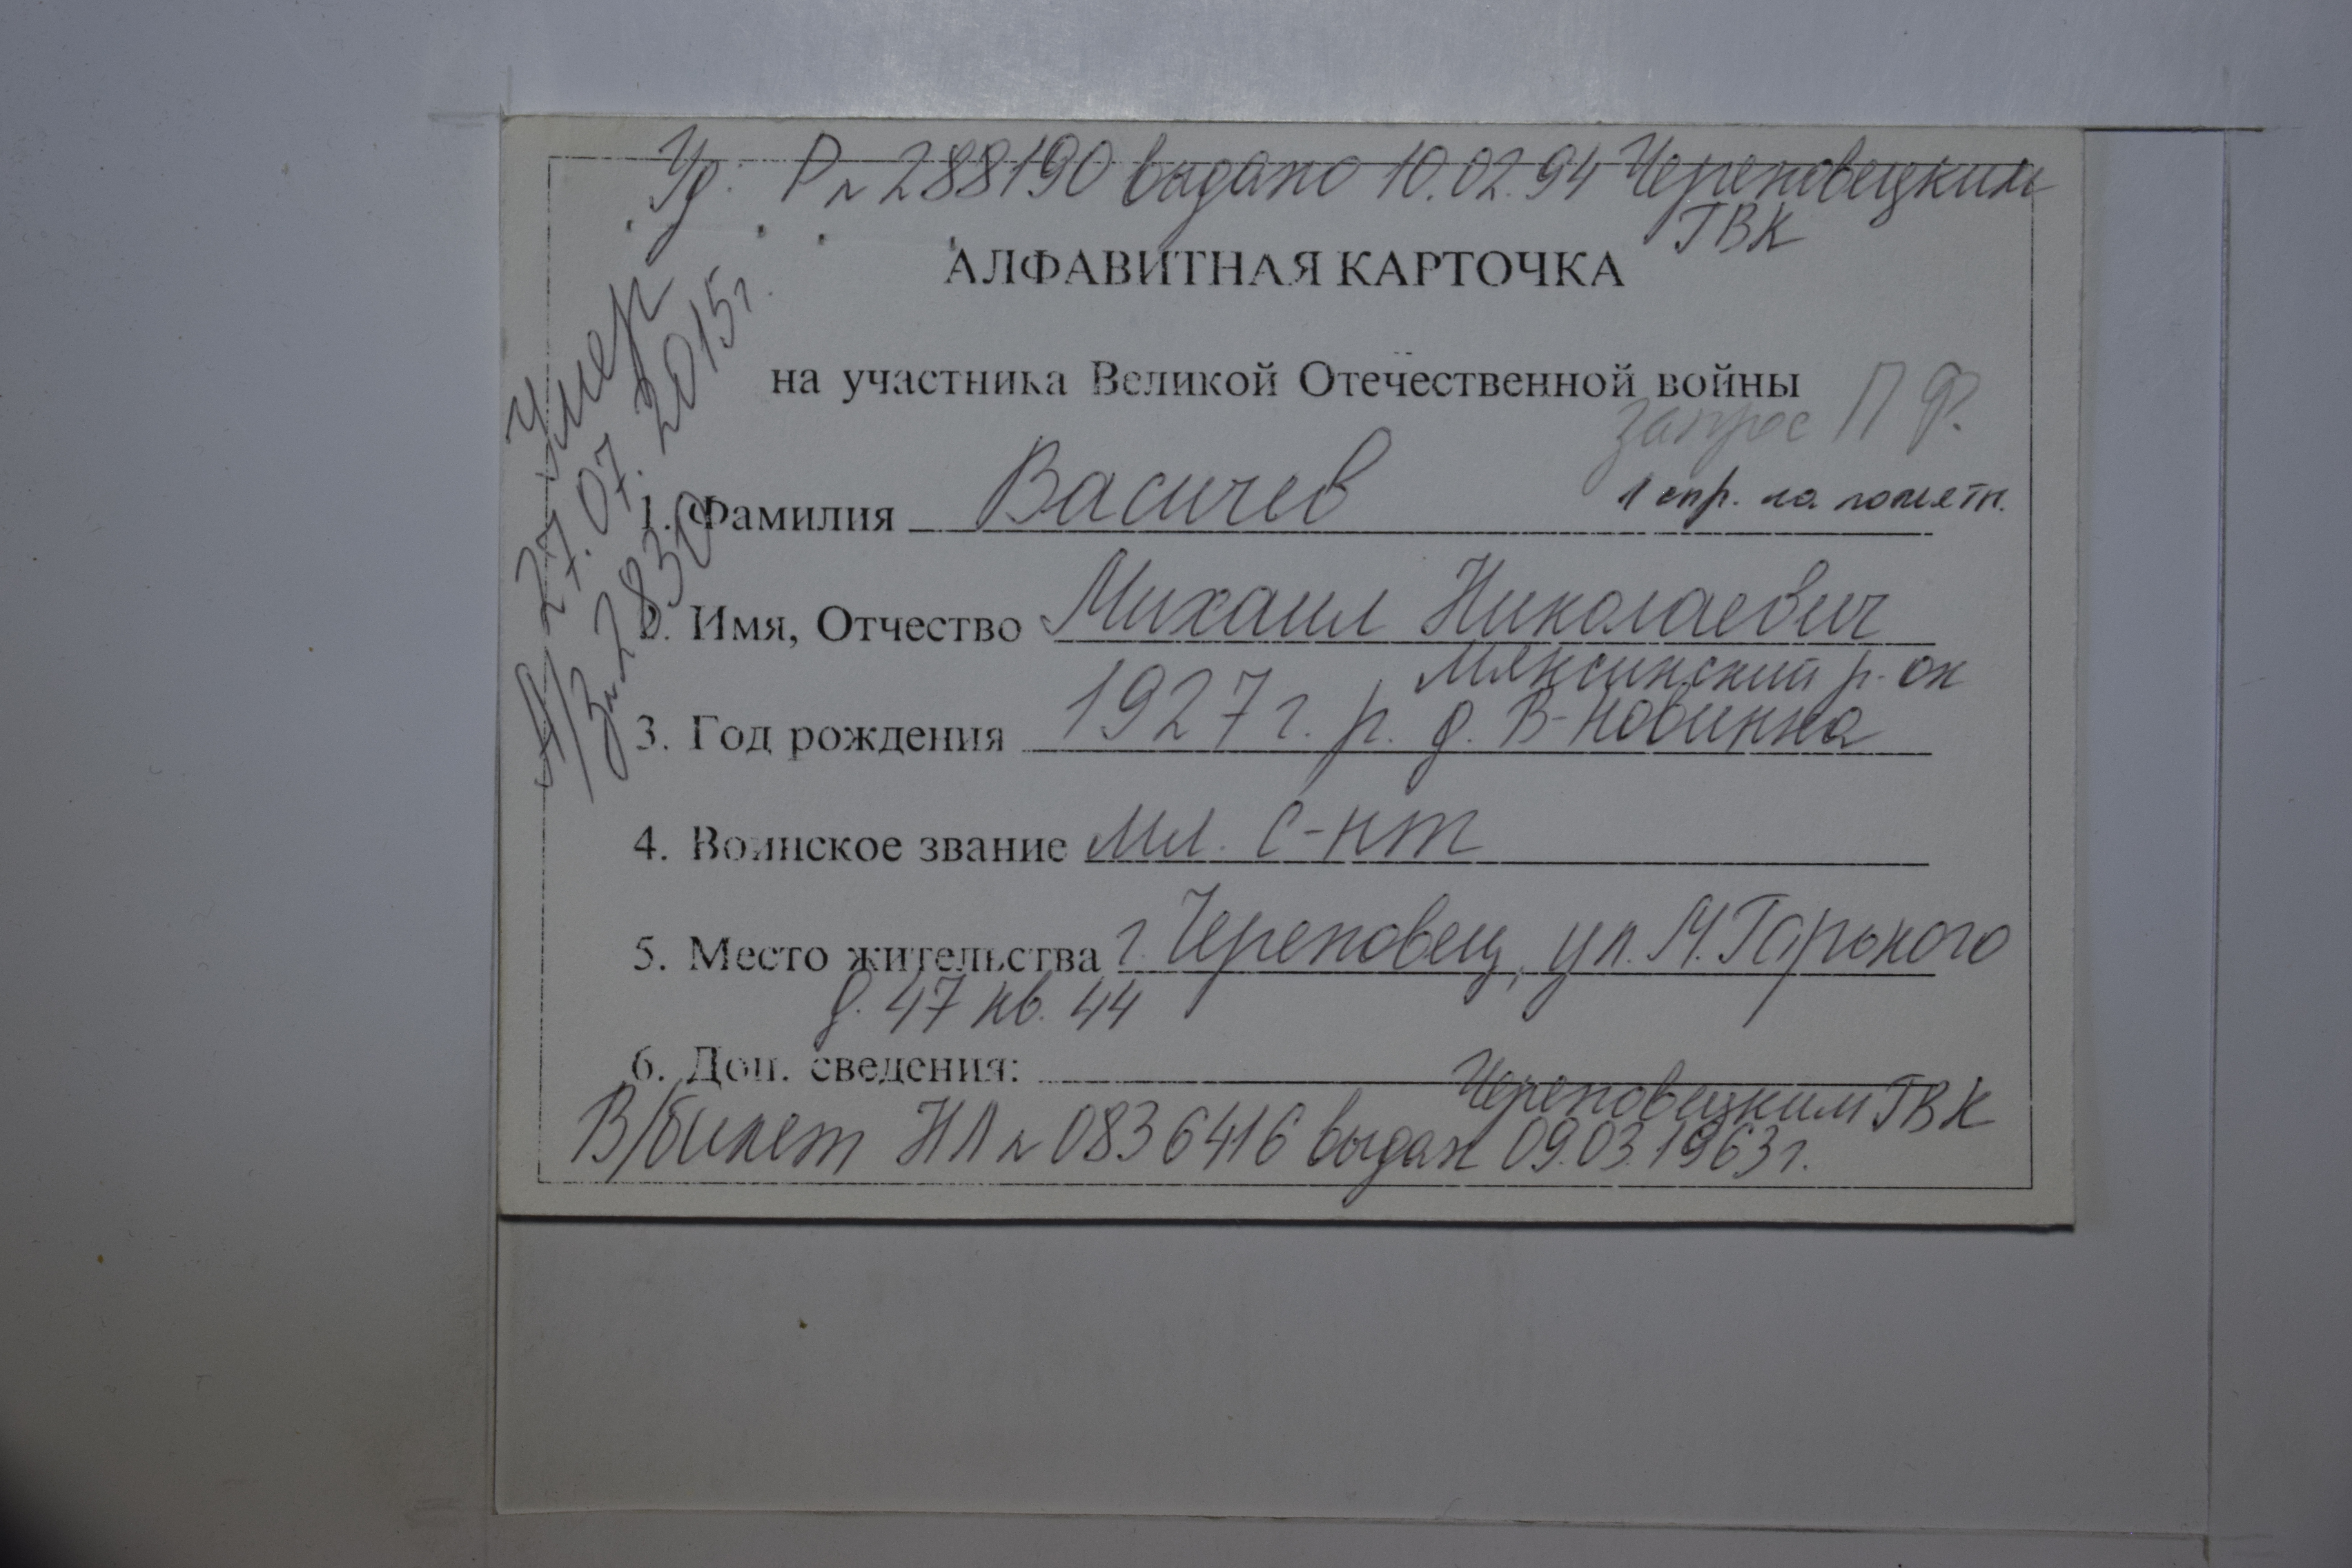 Уд. Р № 288190 выдано 10.02.94 Череповецким
ГВК
АЛФАВИТНАЯ КАРТОЧКА
на участника Великой Отечественной войны
запрос ПФ.
Умер
27.07.2015г.
А/З № 2830
1 спр. на
1. Фамилия Васичев
2. Имя, Отчество Михаил Николаевич
Мяксинский р-он
3. Год рождения 1927г. р. д. В-Новинка
4. Воинское звание мл. с-нт
5. Место жительства г. Череповец, ул. М. Горького
д. 47 кв. 44
6. Доп. сведения:
Череповецким ГВК
В/билет НЛ № 0836416 выдан 09.03.1963г.